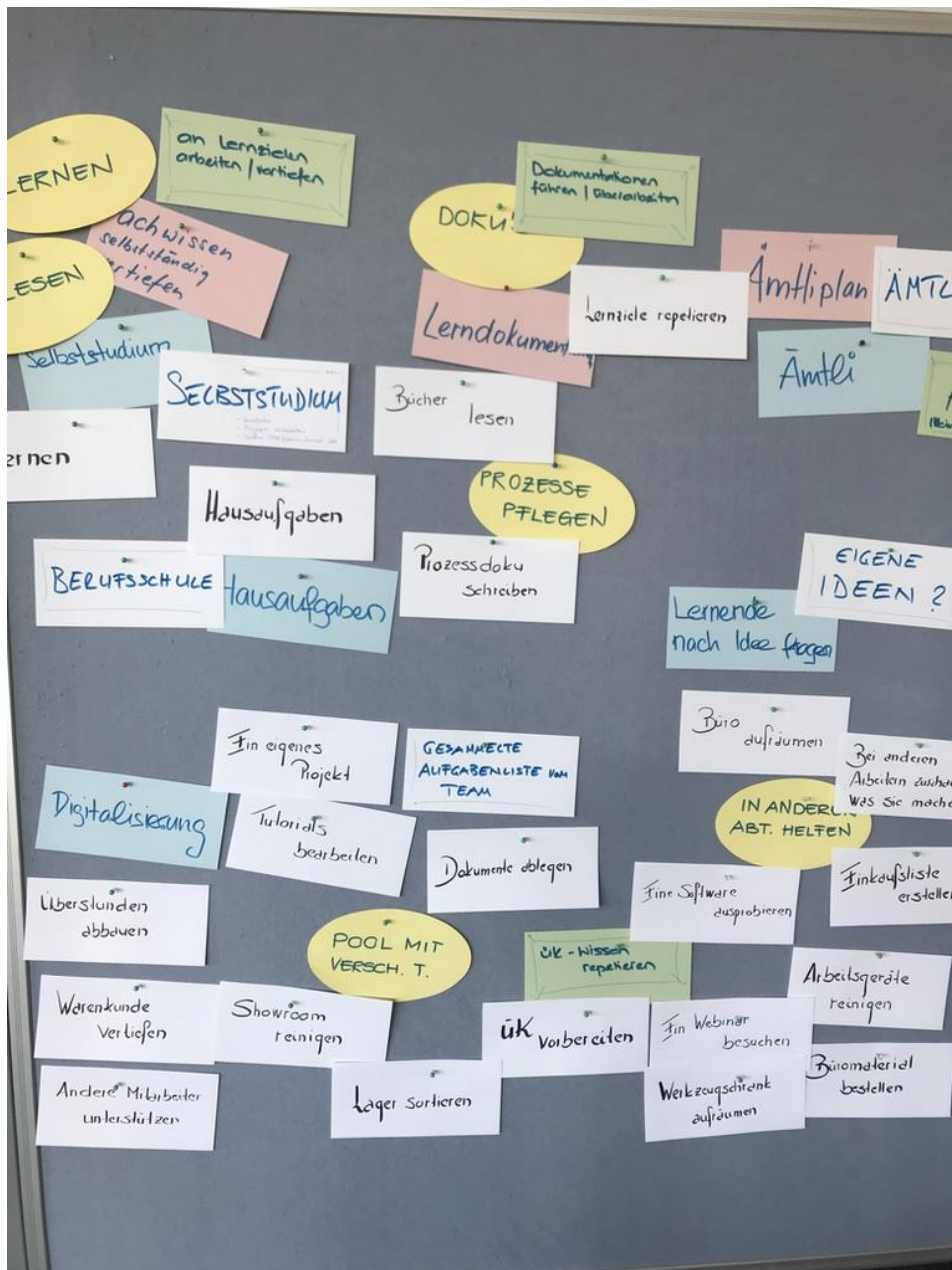 LERNEN
an Lernzielen
arbeiten / vertiefen
Fachwissen
selbstständig
vertiefen
LESEN
Selbststudium
SELBSTSTUDIUM
ernen
Hausaufgaben
BERUFSSCHULE
Hausaufgaben
DOKU
Dokumentationen
führen / überarbeiten
Lerndokument
Lernziele repetieren
Bücher
lesen
PROZESSE
PFLEGEN
Prozessdoku
schreiben
Ämtliplan
ÄMTL
Ämtli
EIGENE
IDEEN ?
Lernende
nach Idee fragen
Ein eigenes
Projekt
GESAMMELTE
AUFGABENLISTE VOM
TEAM
Digitalisierung
Tutorials
bearbeiten
Dokumente ablegen
Büro
aufräumen
Bei anderen
Arbeitern zuschauen
Was sie mache
IN ANDEREN
ABT. HELFEN
Eine Software
ausprobieren
Einkaufsliste
erstellen
Überstunden
abbauen
POOL MIT
VERSCH. T.
ük - Wissen
repetieren
Arbeitsgeräte
reinigen
Warenkunde
vertiefen
Showroom
reinigen
ük vorbereiten
Ein Webinar
besuchen
Büromaterial
bestellen
Andere Mitarbeiter
unterstützen
Lager sortieren
Werkzeugschrank
aufräumen